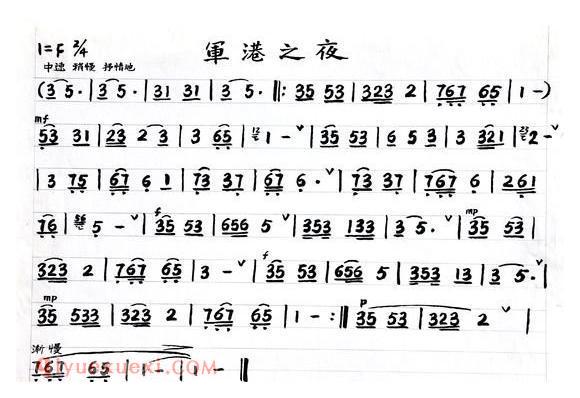 軍港之夜
1=F 2/4
中速 稍慢 抒情地
(3 5·|3 5·|31 31|3 5·‖:35 53|323 2|767 65|1-)
mf
53 31|23 2 3|3 65|1-ˇ|35 53|6 5 3|3 321|2-ˇ
|3 75|67 6 1|73 37|67 6·ˇ|73 37|767 6|261
f mp
76|5-ˇ|35 53|656 5ˇ|353 133|3 5·ˇ|35 53|
f
323 2|767 65|3-ˇ|35 53|656 5|353 13|3 5·ˇ|
mp p
35 533|323 2|767 65|1-:‖35 53|323 2ˇ|
渐慢
767 65|1-|1-‖